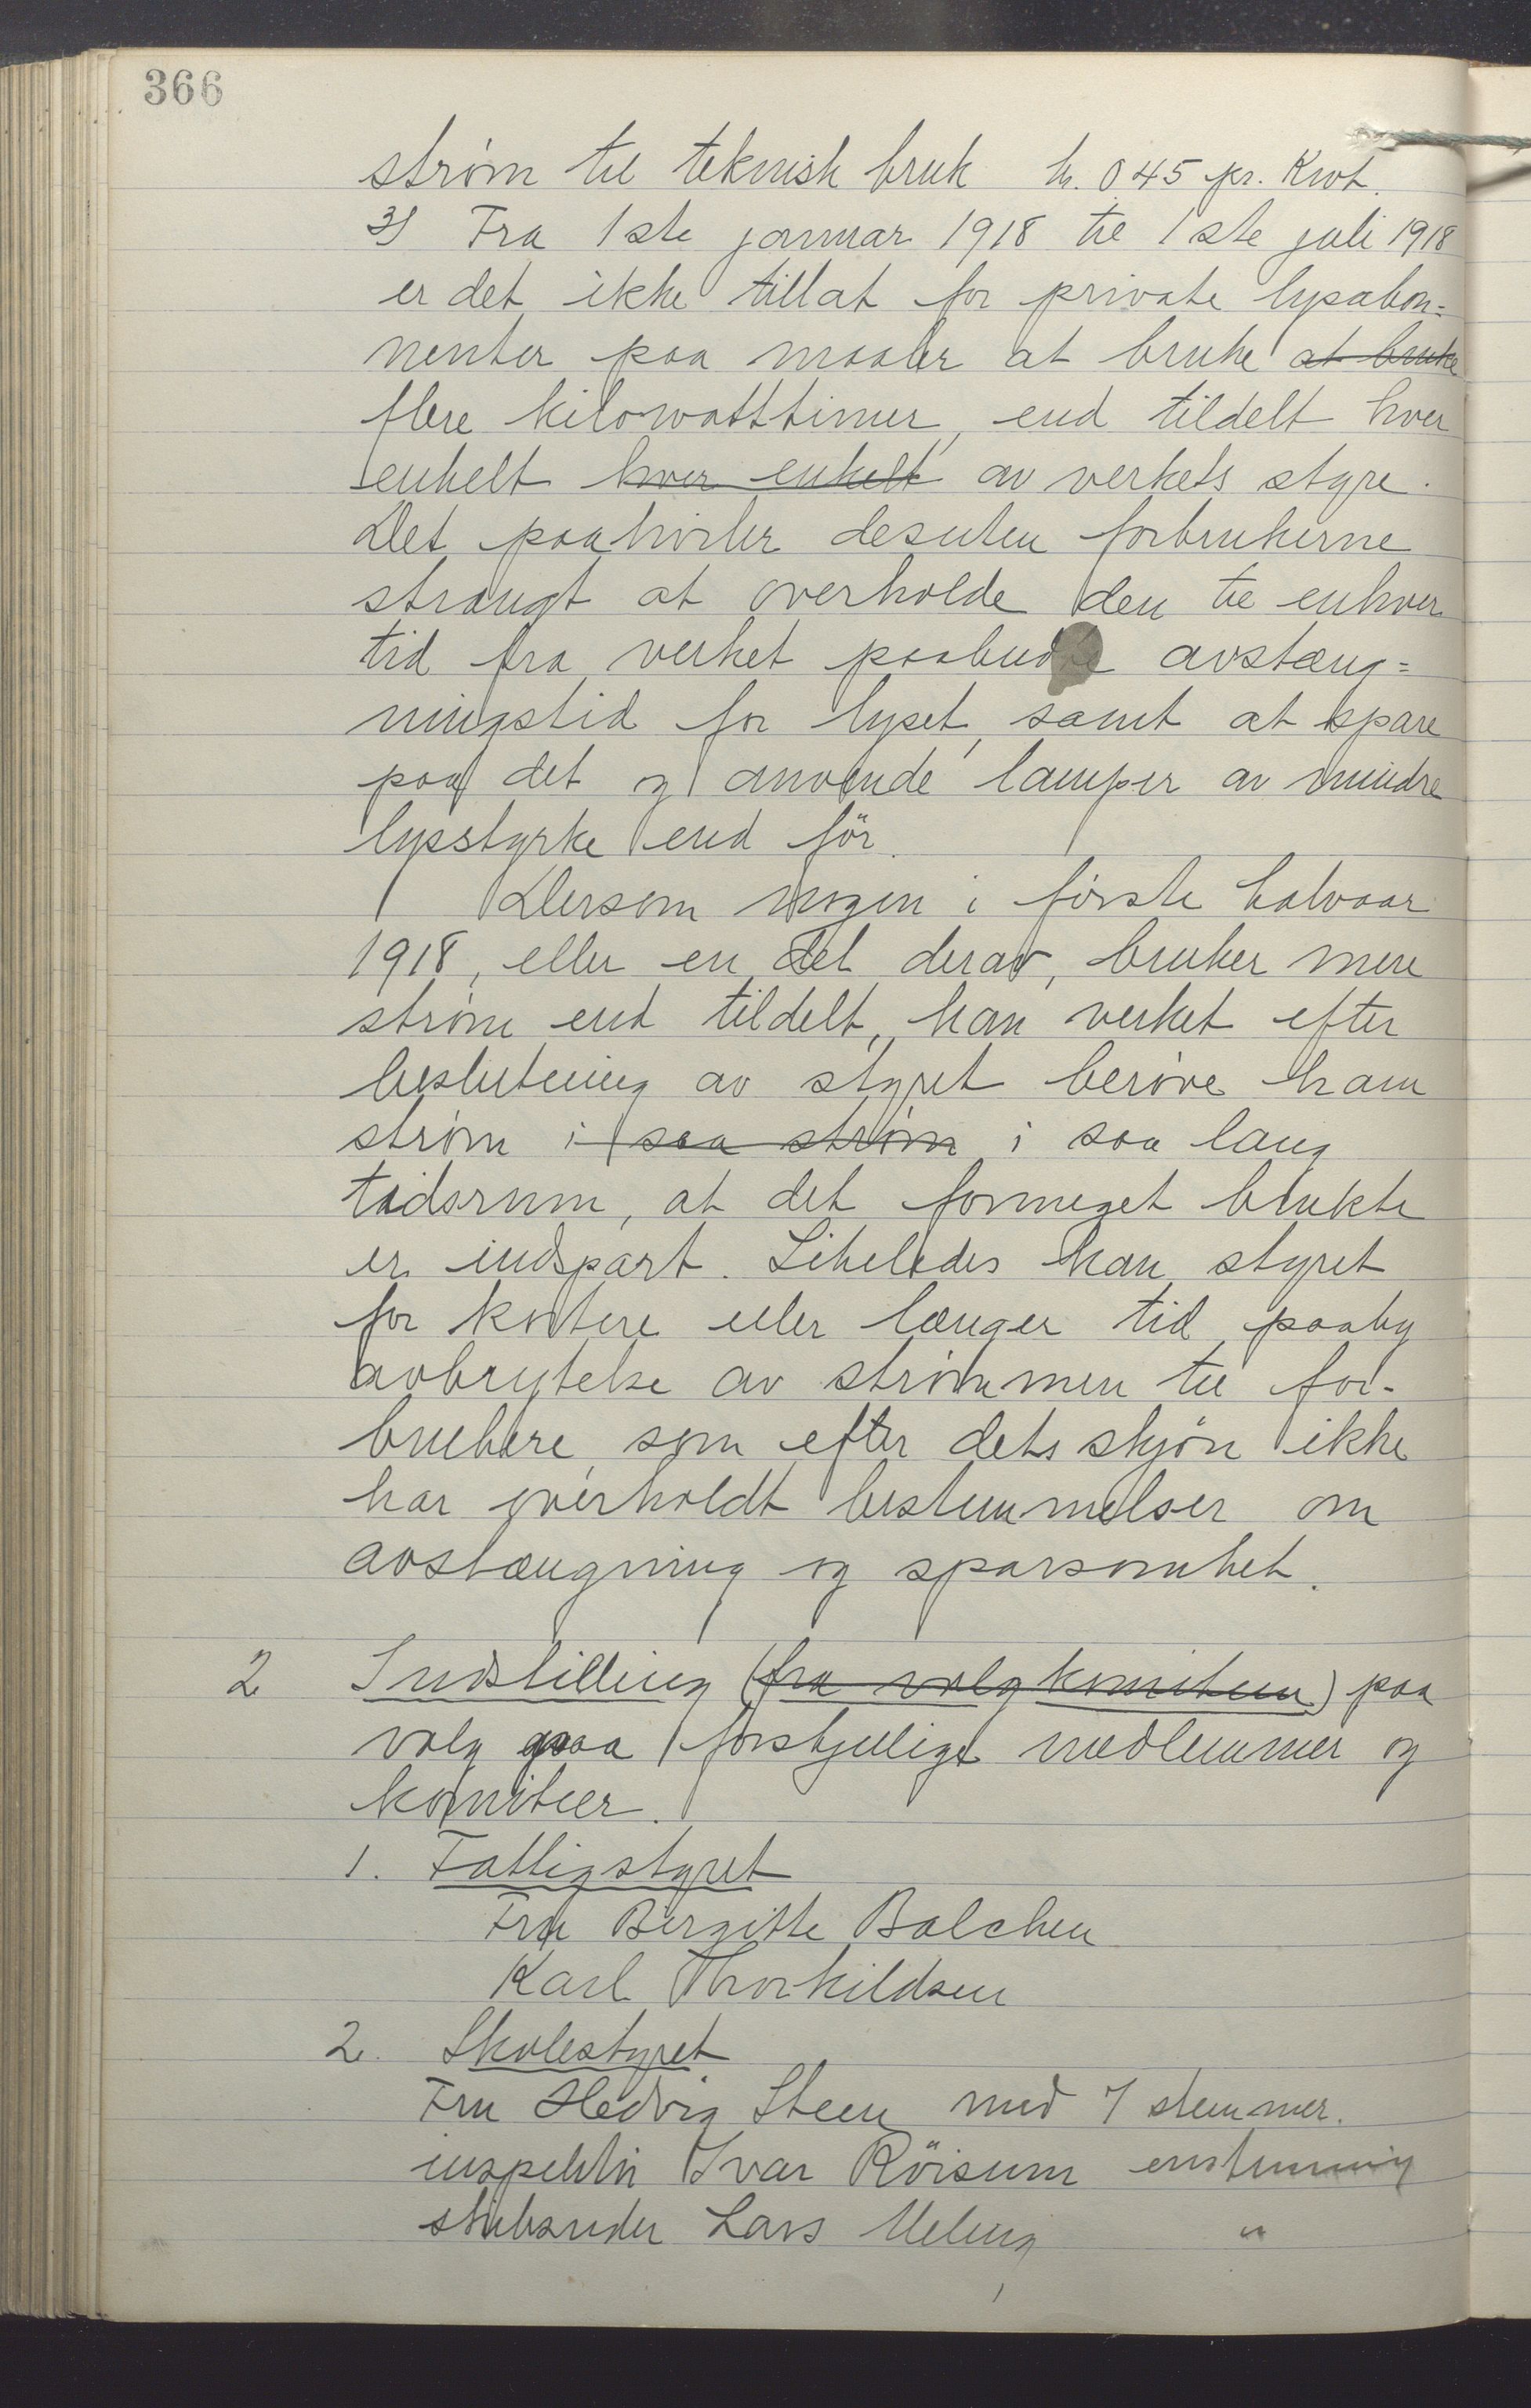 366
strøm til teknisk bruk kr. 0 45 pr. Kwt.
3) Fra 1ste januar 1918 til 1ste juli 1918
er det ikke tillat for private lysabon=
nenter paa maaler at bruke at bruke
flere kilowatttimer, end tildelt hver
enkelt hver enkelt av verkets styre.
Det paahviler desuten forbrukerne
strængt at overholde den til enhver
tid fra verket paabudte avstæng=
ningstid for lyset, samt at spare
paa det og anvende lamper av mindre
lysstyrke end før.
Dersom nogen i første halvaar
1918, eller en del derav, bruker mere
strøm end tildelt, kan verket efter
beslutning av styret berøve ham
strøm i saa strøm i saa lang
tidsrum, at det formeget brukte
er indspart. Likeledes kan styret
for kortere eller længer tid paaby
avbrytelse av strømmen til for-
brukere, som efter dets skjøn ikke
har overholdt bestemmelser om
avstængning og sparsomhet.
2 Indstilling (fra valgkomiteen) paa
valg paa forskjellige medlemmer og
komiteer.
1. Fattigstyret
Fru Birgitte Balchen
Karl Thorkildsen
2. Skolestyret
Fru Hedvig Steen med 7 stemmer.
inspektør Ivar Röisum enstemmig
Lars Meling "